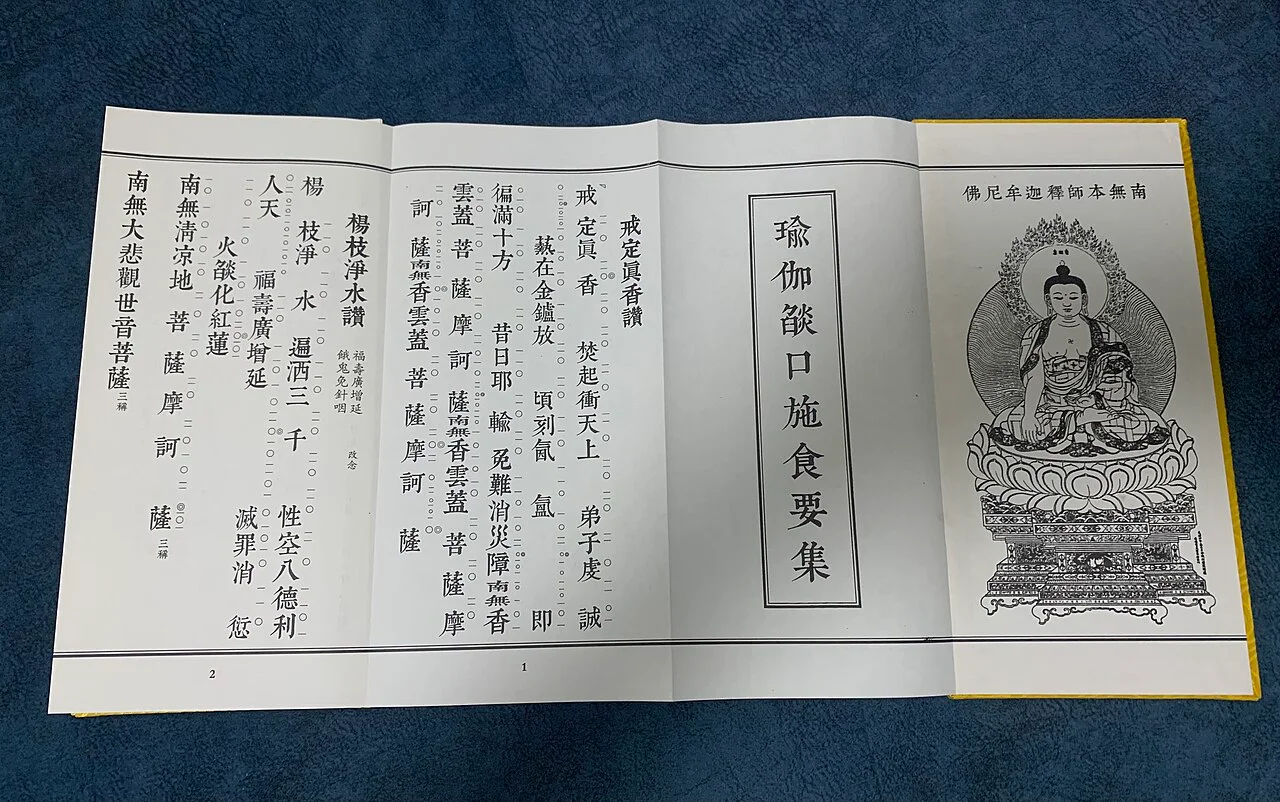 南無本師釋迦牟尼佛
瑜伽燄口施食要集
戒定眞香讚
戒定眞香 焚起衝天上 弟子虔誠
爇在金鑪放 頃刻氤氳 即
徧滿十方 昔日耶輸 免難消災障 南無香
雲蓋菩薩摩訶薩 南無香雲蓋菩薩摩
訶薩 南無香雲蓋菩薩摩訶薩
1
楊枝淨水讚
福壽廣增延
餓鬼免針咽
改念
楊枝淨水 遍洒三千 性空八德利
人天 福壽廣增延 滅罪消愆
火燄化紅蓮
南無清凉地 菩薩摩訶薩 三稱
南無大悲觀世音菩薩 三稱
2